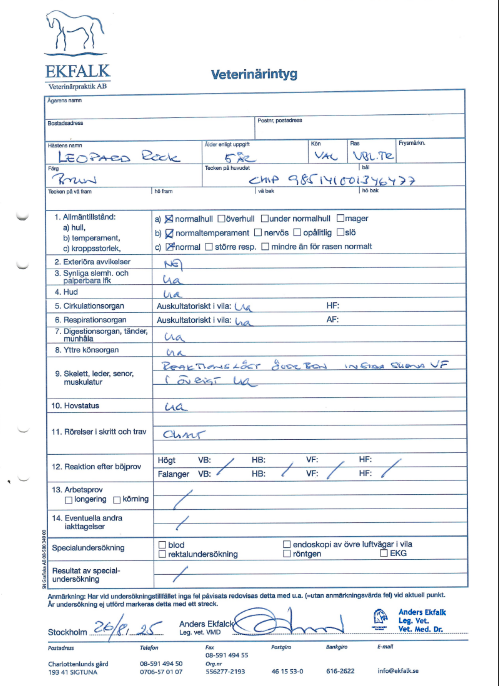 EKFALK
Veterinärpraktik AB
Veterinärintyg
Ägarens namn
Bostadsadress
Postnr, postadress
Hästens namn
Ålder enligt uppgift
Kön
Ras
Frysmärkn.
LEOPARD ROCK
5 ÅR
VAL
VBL.TR
Färg
Tecken på huvudet
bål
BRUN
CHIP 985141001346477
Tecken på vä fram
hö fram
vä bak
hö bak
1. Allmäntillstånd:
a) hull,
b) temperament,
c) kroppsstorlek,
a) ☒ normalhull ☐ överhull ☐ under normalhull ☐ mager
b) ☒ normaltemperament ☐ nervös ☐ opålitlig ☐ slö
c) ☒ normal ☐ större resp. ☐ mindre än för rasen normalt
2. Exteriöra avvikelser
NEJ
3. Synliga slemh. och
palperbara lfk
ua
4. Hud
ua
5. Cirkulationsorgan
Auskultatoriskt i vila: ua
HF:
6. Respirationsorgan
Auskultatoriskt i vila: ua
AF:
7. Digestionsorgan, tänder,
munhåla
ua
8. Yttre könsorgan
ua
9. Skelett, leder, senor,
muskulatur
REAKTIONSLÖST ÖVERBEN INSIDA SKENA VF
I ÖVRIGT ua
10. Hovstatus
ua
11. Rörelser i skritt och trav
12. Reaktion efter böjprov
Högt VB: HB: VF: HF:
Falanger VB: HB: VF: HF:
13. Arbetsprov
☐ longering ☐ körning
14. Eventuella andra
iakttagelser
Specialundersökning
☐ blod
☐ rektalundersökning
☐ endoskopi av övre luftvägar i vila
☐ röntgen ☐ EKG
Resultat av special-
undersökning
Anmärkning: Har vid undersökningstillfället inga fel påvisats redovisas detta med u.a. (=utan anmärkningsvärda fel) vid aktuell punkt.
Är undersökning ej utförd markeras detta med ett streck.
Stockholm 26/8, 25
Anders Ekfalk
Leg. vet. VMD
Anders Ekfalk
Leg. Vet.
Vet. Med. Dr.
Postadress
Telefon
Fax
Postgiro
Bankgiro
E-mail
08-591 494 55
Charlottenlunds gård
08-591 494 50
Org.nr
193 41 SIGTUNA
0706-57 01 07
556277-2193
46 15 53-0
616-2622
info@ekfalk.se